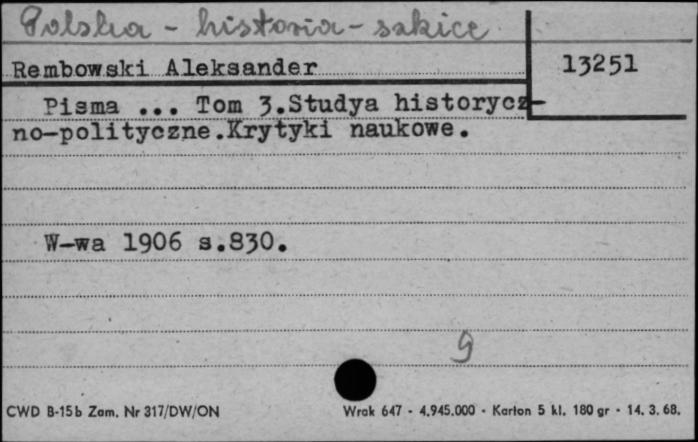 Polska - historia - szkice
Rembowski Aleksander
13251
Pisma ... Tom 3.Studya historycz-
no-polityczne.Krytyki naukowe.
W-wa 1906 s.830.
g
CWD B-15b Zam. Nr 317/DW/ON
Wrak 647 - 4.945.000 - Karton 5 kl. 180 gr - 14. 3. 68.